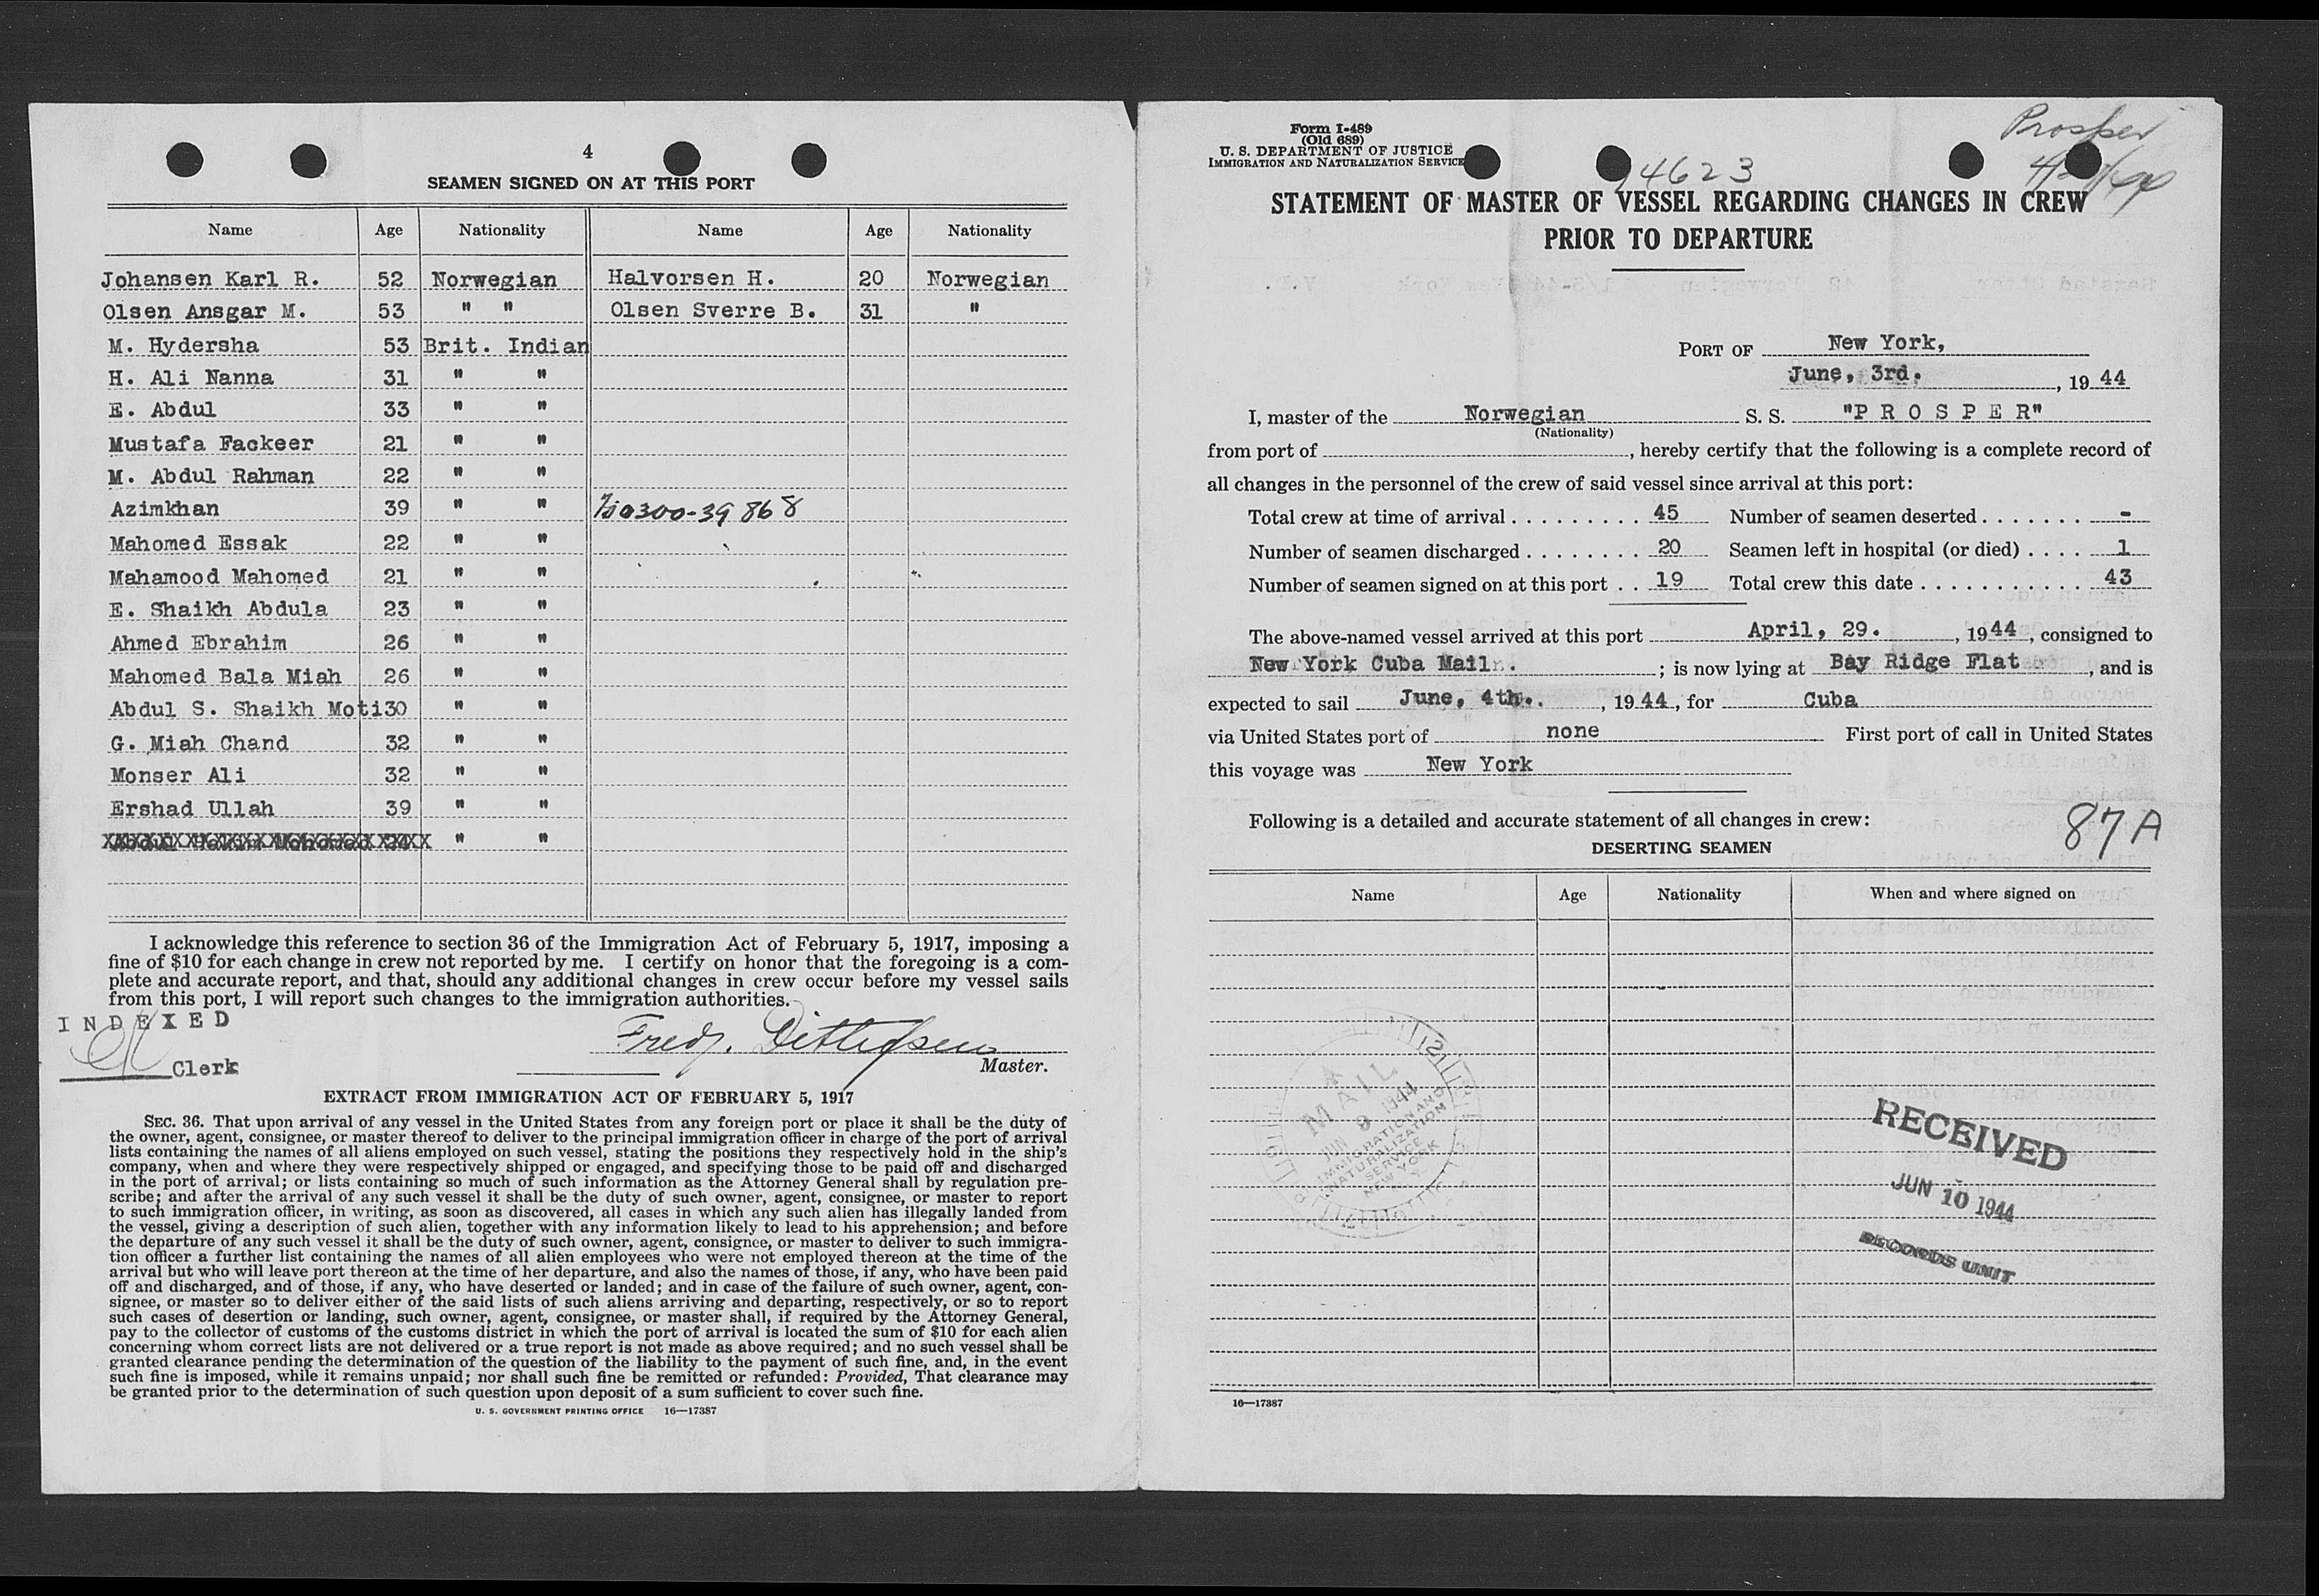 4
SEAMEN SIGNED ON AT THIS PORT
Name Age Nationality Name Age Nationality
Johansen Karl R. 52 Norwegian Halvorsen H. 20 Norwegian
Olsen Ansgar M. 53 " " Olsen Sverre B. 31 "
M. Hydersha 53 Brit. Indian
H. Ali Nanna 31 " "
E. Abdul 33 " "
Mustafa Fackeer 21 " "
M. Abdul Rahman 22 " "
Azimkhan 39 " " 0300-39868
Mahomed Essak 22 " "
Mahamood Mahomed 21 " "
E. Shaikh Abdula 23 " "
Ahmed Ebrahim 26 " "
Mahomed Bala Miah 26 " "
Abdul S. Shaikh Moti 30 " "
G. Miah Chand 32 " "
Monser Ali 32 " "
Ershad Ullah 39 " "
" "
I acknowledge this reference to section 36 of the Immigration Act of February 5, 1917, imposing a
fine of $10 for each change in crew not reported by me. I certify on honor that the foregoing is a com-
plete and accurate report, and that, should any additional changes in crew occur before my vessel sails
from this port, I will report such changes to the immigration authorities.
INDEXED
Clerk
Fredr. Ditlefsen
Master.
EXTRACT FROM IMMIGRATION ACT OF FEBRUARY 5, 1917
SEC. 36. That upon arrival of any vessel in the United States from any foreign port or place it shall be the duty of
the owner, agent, consignee, or master thereof to deliver to the principal immigration officer in charge of the port of arrival
lists containing the names of all aliens employed on such vessel, stating the positions they respectively hold in the ship's
company, when and where they were respectively shipped or engaged, and specifying those to be paid off and discharged
in the port of arrival; or lists containing so much of such information as the Attorney General shall by regulation pre-
scribe; and after the arrival of any such vessel it shall be the duty of such owner, agent, consignee, or master to report
to such immigration officer, in writing, as soon as discovered, all cases in which any such alien has illegally landed from
the vessel, giving a description of such alien, together with any information likely to lead to his apprehension; and before
the departure of any such vessel it shall be the duty of such owner, agent, consignee, or master to deliver to such immigra-
tion officer a further list containing the names of all alien employees who were not employed thereon at the time of the
arrival but who will leave port thereon at the time of her departure, and also the names of those, if any, who have been paid
off and discharged, and of those, if any, who have deserted or landed; and in case of the failure of such owner, agent, con-
signee, or master so to deliver either of the said lists of such aliens arriving and departing, respectively, or so to report
such cases of desertion or landing, such owner, agent, consignee, or master shall, if required by the Attorney General,
pay to the collector of customs of the customs district in which the port of arrival is located the sum of $10 for each alien
concerning whom correct lists are not delivered or a true report is not made as above required; and no such vessel shall be
granted clearance pending the determination of the question of the liability to the payment of such fine, and, in the event
such fine is imposed, while it remains unpaid; nor shall such fine be remitted or refunded: Provided, That clearance may
be granted prior to the determination of such question upon deposit of a sum sufficient to cover such fine.
U. S. GOVERNMENT PRINTING OFFICE 16—17387
Form I-489
(Old 689)
U. S. DEPARTMENT OF JUSTICE
IMMIGRATION AND NATURALIZATION SERVICE
Prosper
4623
STATEMENT OF MASTER OF VESSEL REGARDING CHANGES IN CREW
PRIOR TO DEPARTURE
PORT OF New York,
June, 3rd. , 19 44
I, master of the Norwegian S. S. "P R O S P E R"
(Nationality)
from port of , hereby certify that the following is a complete record of
all changes in the personnel of the crew of said vessel since arrival at this port:
Total crew at time of arrival . . . . . . . . . 45 Number of seamen deserted . . . . . . . -
Number of seamen discharged . . . . . . . . 20 Seamen left in hospital (or died) . . . . 1
Number of seamen signed on at this port . . 19 Total crew this date . . . . . . . . . . . . 43
The above-named vessel arrived at this port April, 29. , 1944, consigned to
New York Cuba Mail. ; is now lying at Bay Ridge Flat , and is
expected to sail June, 4th. , 19 44, for Cuba
via United States port of none First port of call in United States
this voyage was New York
Following is a detailed and accurate statement of all changes in crew:
87A
DESERTING SEAMEN
Name Age Nationality When and where signed on
MAIL
JUN 9 1944
IMMIGRATION AND
NATURALIZATION
SERVICE
NEW YORK
RECEIVED
JUN 10 1944
RECORDS UNIT
16—17387